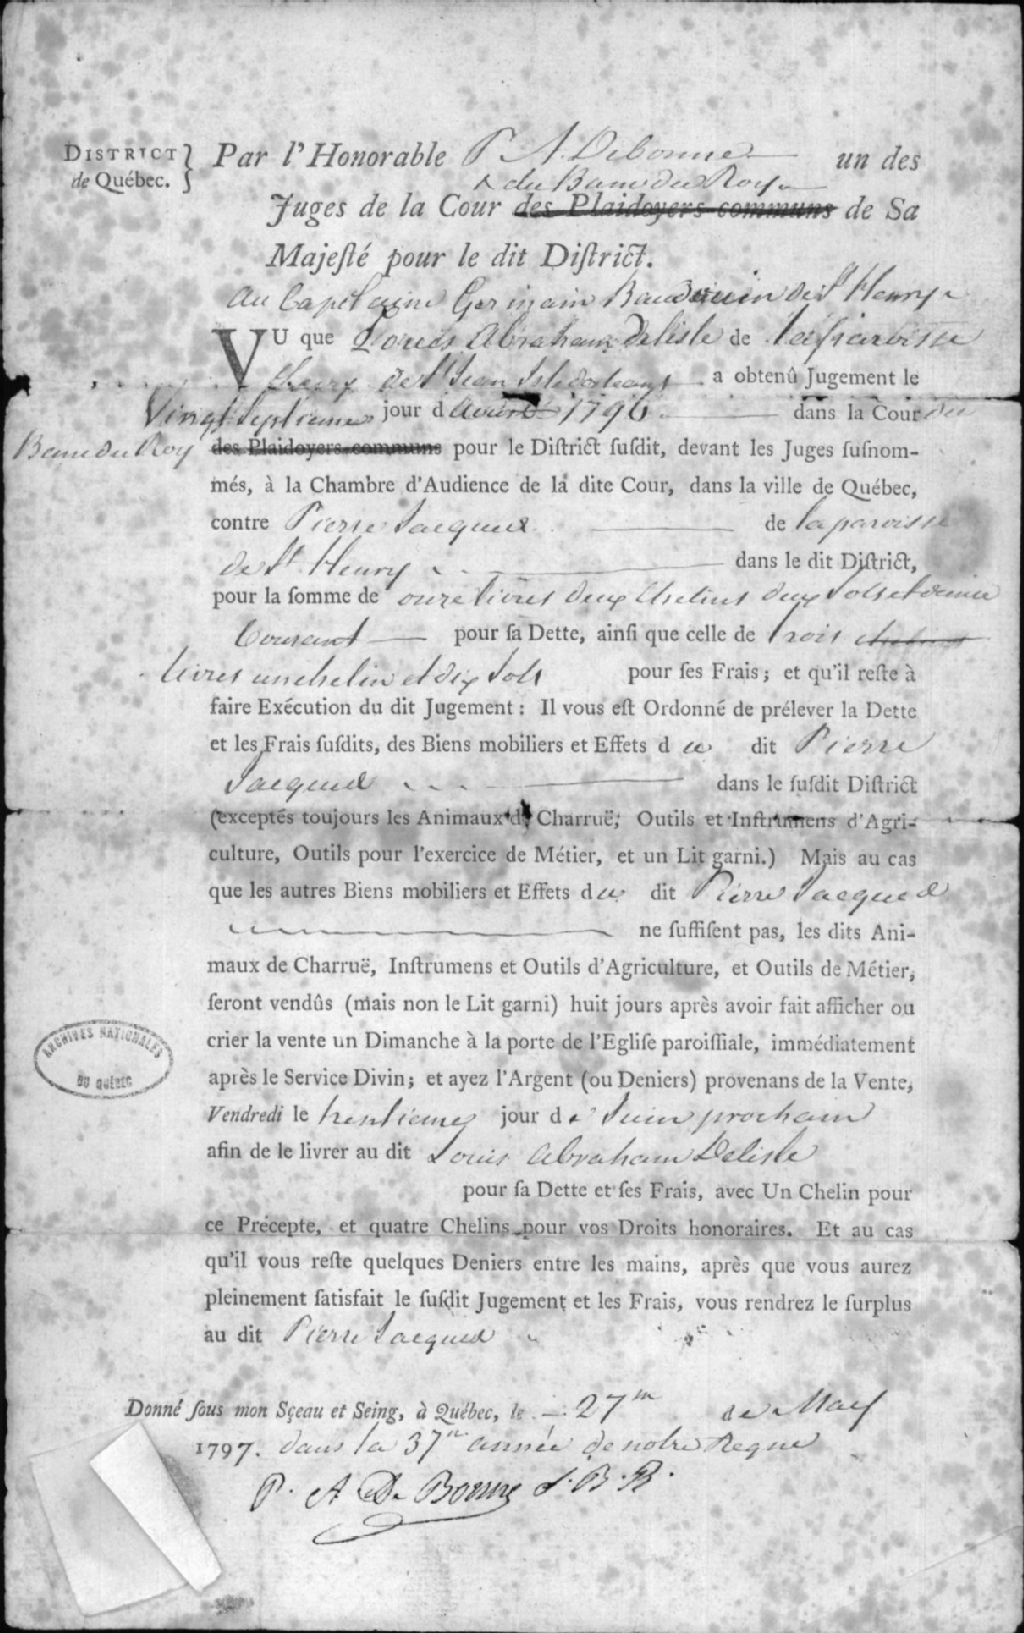 DISTRICT de Québec. } Par l'Honorable P A Debonne un des
du Banc du Roy
Juges de la Cour des Plaidoyers communs de Sa
Majesté pour le dit District.
Au Capitaine Germain de St Henry
VU que Louis Abraham Delisle de la paroisse
de St Jean Isle dorleans a obtenû Jugement le
Vingt Septieme jour d avril 1796 dans la Cour du
Banc du Roy des Plaidoyers communs pour le District susdit, devant les Juges susnom-
més, à la Chambre d'Audience de la dite Cour, dans la ville de Québec,
contre Pierre Jacques de la paroisse
de St Henry dans le dit District,
pour la somme de onze livres deux Chelins deux Sols et demie
Courant pour sa Dette, ainsi que celle de trois chelins
livres un chelin et dix Sols pour ses Frais; et qu'il reste à
faire Exécution du dit Jugement: Il vous est Ordonné de prélever la Dette
et les Frais susdits, des Biens mobiliers et Effets d u dit Pierre
Jacques dans le susdit District
(exceptés toujours les Animaux de Charruë, Outils et Instrumens d'Agri-
culture, Outils pour l'exercice de Métier, et un Lit garni.) Mais au cas
que les autres Biens mobiliers et Effets du dit Pierre Jacques
ne suffisent pas, les dits Ani-
maux de Charruë, Instrumens et Outils d'Agriculture, et Outils de Métier,
seront vendûs (mais non le Lit garni) huit jours après avoir fait afficher ou
crier la vente un Dimanche à la porte de l'Eglise paroissiale, immédiatement
après le Service Divin; et ayez l'Argent (ou Deniers) provenans de la Vente,
Vendredi le trentieme jour d e Juin prochain
afin de le livrer au dit Louis Abraham Delisle
pour sa Dette et ses Frais, avec Un Chelin pour
ce Précepte, et quatre Chelins pour vos Droits honoraires. Et au cas
qu'il vous reste quelques Deniers entre les mains, après que vous aurez
pleinement satisfait le susdit Jugement et les Frais, vous rendrez le surplus
au dit Pierre Jacques
ARCHIVES NATIONALES
DU QUÉBEC
Donné sous mon Sçeau et Seing, à Québec, le 27m de May
1797. dans la 37m année de notre Regne
P. A De Bonne J. B. R.